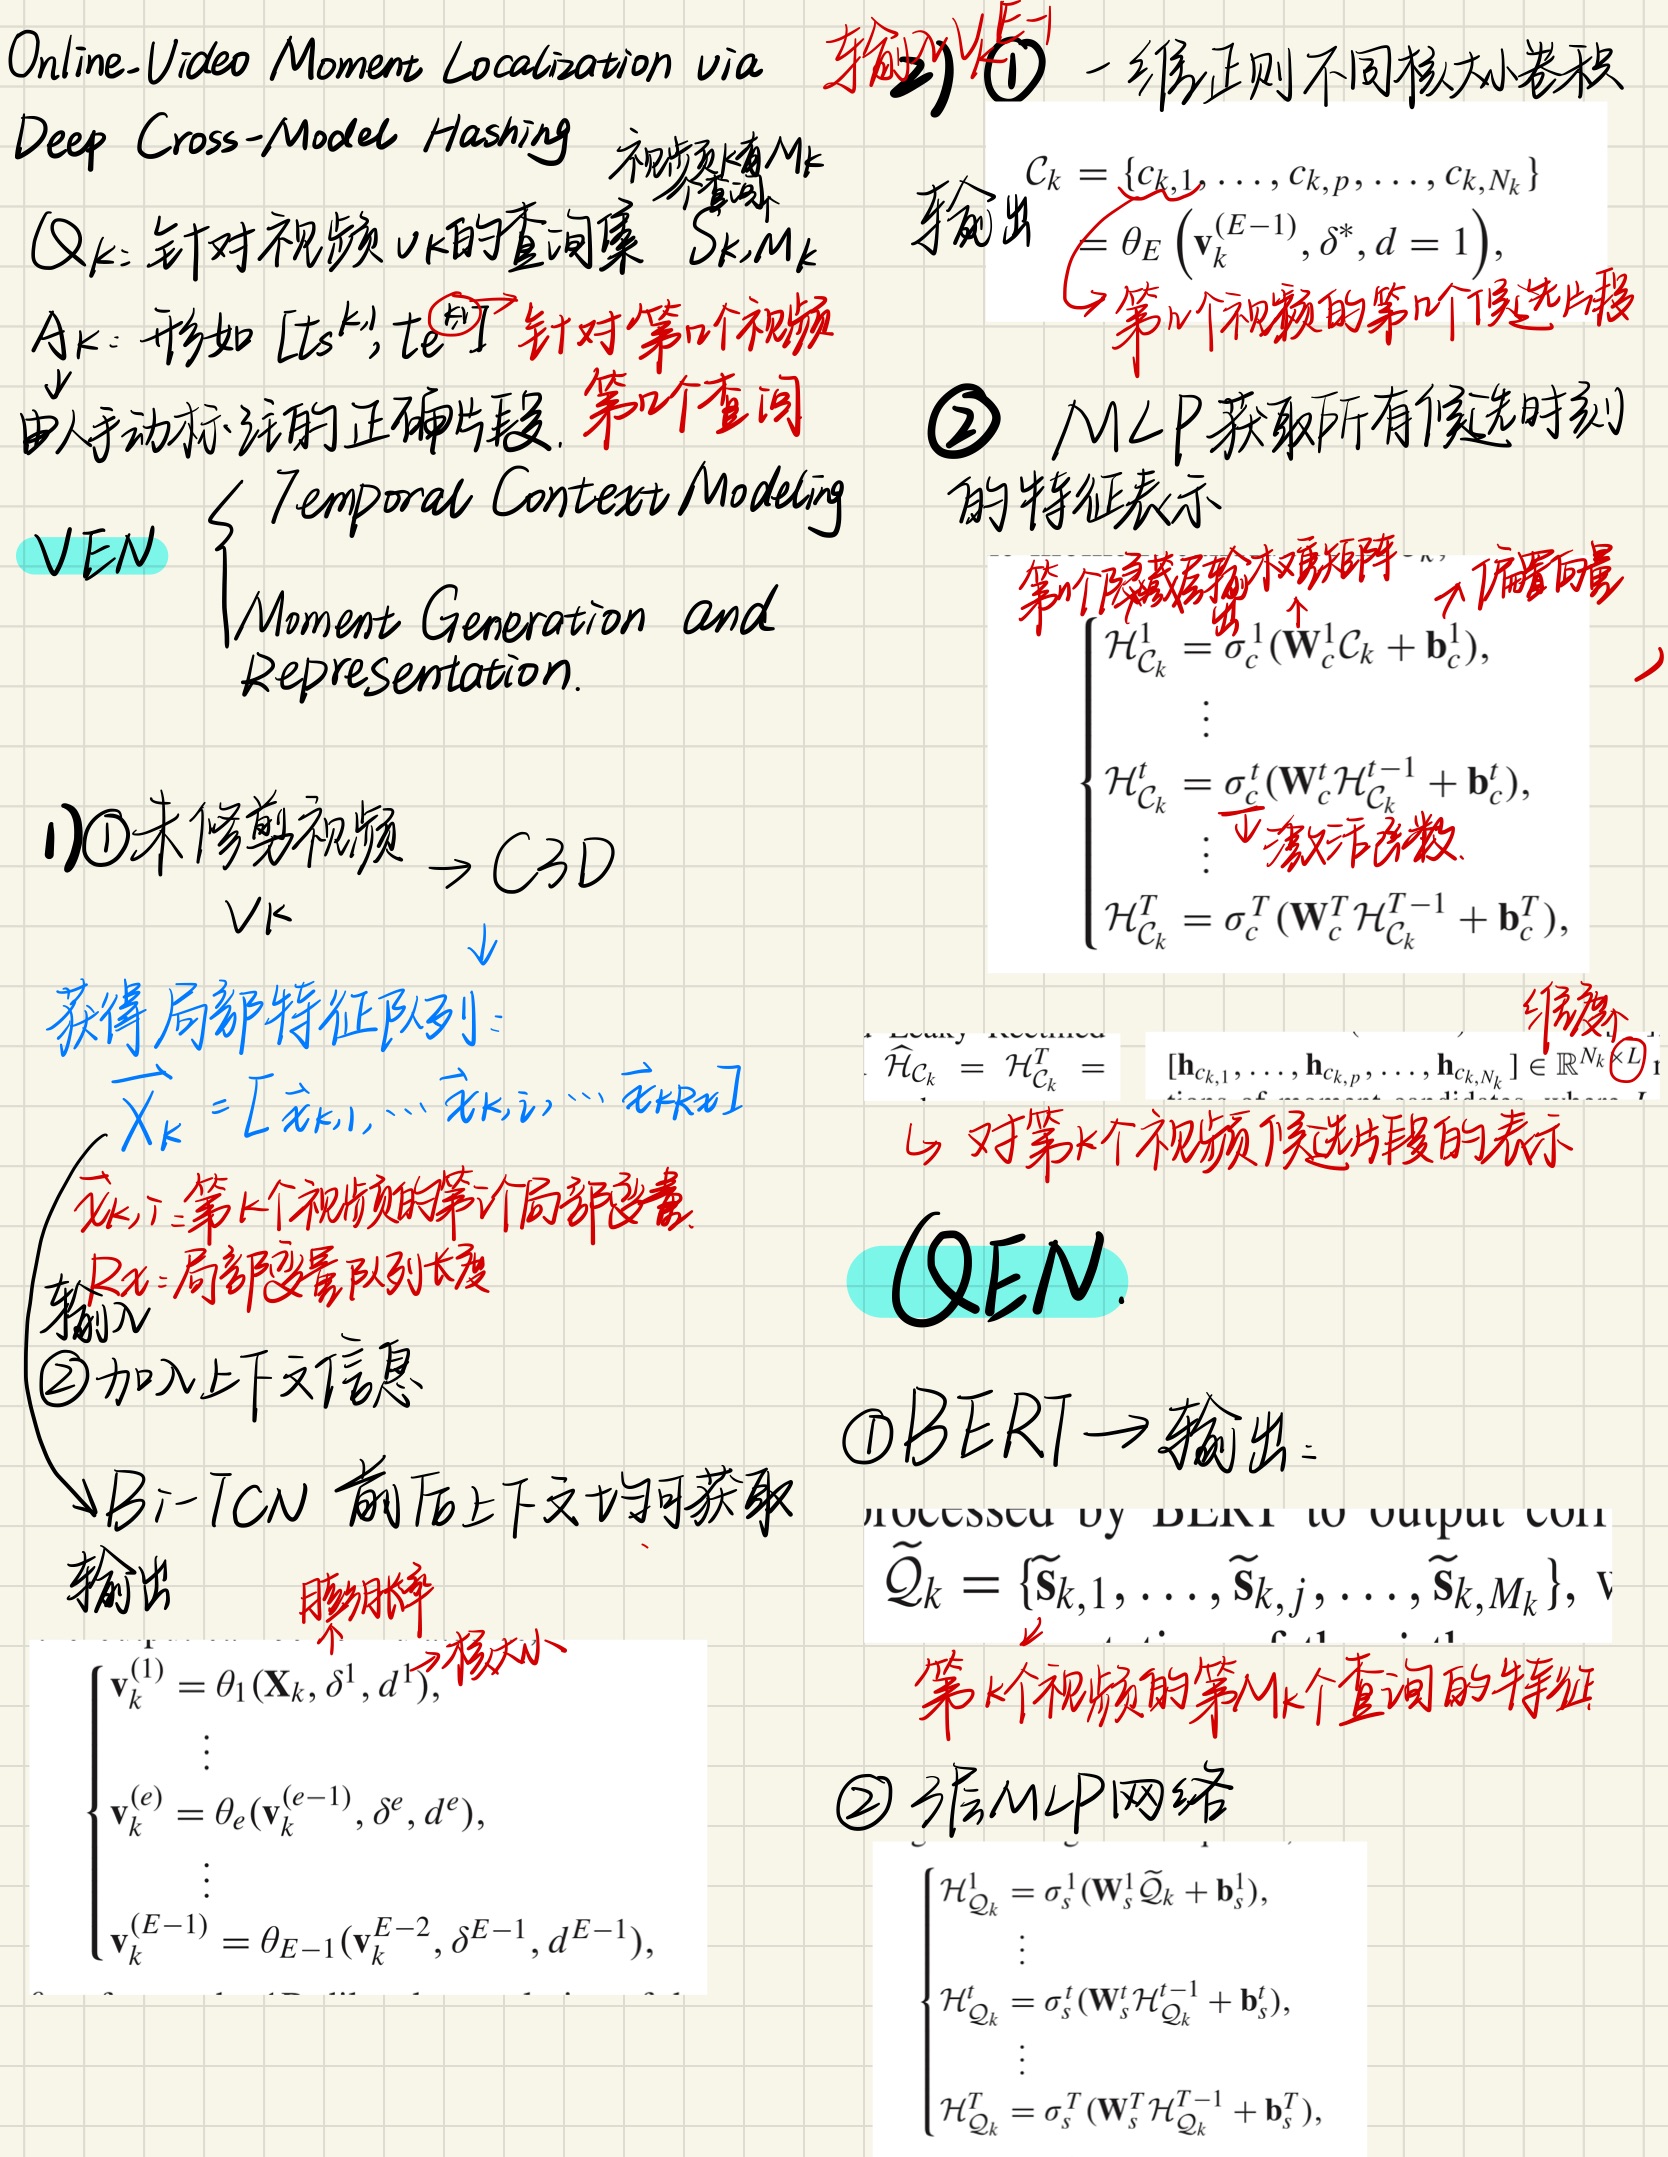 Online-Video Moment Localization via
Deep Cross-Model Hashing
视频k有Mk
个查询
Qk: 针对视频vk的查询集 Sk,Mk
Ak: 形如 [ts^{k,1}, te^{k,1}] → 针对第n个视频
第n个查询
↓
由人手动标注的正确片段.
VEN
Temporal Context Modeling
Moment Generation and
Representation.
1) ① 未修剪视频 → C3D
Vk
↓
获得局部特征队列:
X_k = [x_{k,1}, ... x_{k,i}, ... x_{kRx}]
x_{k,i}: 第k个视频的第i个局部变量.
Rx: 局部变量队列长度
输入
② 加入上下文信息
Bi-TCN 前后上下文均可获取
输出
膨胀率
↑
→ 核大小
v_k^{(1)} = θ_1(X_k, δ^1, d^1),
⋮
v_k^{(e)} = θ_e(v_k^{(e−1)}, δ^e, d^e),
⋮
v_k^{(E−1)} = θ_{E−1}(v_k^{E−2}, δ^{E−1}, d^{E−1}),
输入V_k^{E-1}
2) ① 一维正则不同核大小卷积
输出
C_k = {c_{k,1}, . . . , c_{k,p}, . . . , c_{k,N_k}}
= θ_E (v_k^{(E−1)}, δ*, d = 1),
第n个视频的第n个候选片段
② MLP获取所有候选时刻
的特征表示
第n个隐藏层输出 权重矩阵 ↑ 偏置向量
H_{C_k}^1 = σ_c^1(W_c^1 C_k + b_c^1),
⋮
H_{C_k}^t = σ_c^t(W_c^t H_{C_k}^{t−1} + b_c^t),
↓ 激活函数.
⋮
H_{C_k}^T = σ_c^T(W_c^T H_{C_k}^{T−1} + b_c^T),
维度
Leaky Rectified
Ĥ_{C_k} = H_{C_k}^T =
[h_{c_{k,1}}, . . . , h_{c_{k,p}}, . . . , h_{c_{k,N_k}}] ∈ ℝ^{N_k×L}
↳ 对第k个视频候选片段的表示
QEN.
① BERT → 输出:
processed by BERT to output
Q̃_k = {s̃_{k,1}, . . . , s̃_{k,j}, . . . , s̃_{k,M_k}},
第k个视频的第Mk个查询的特征
② 3层MLP网络
H_{Q_k}^1 = σ_s^1(W_s^1 Q̃_k + b_s^1),
⋮
H_{Q_k}^t = σ_s^t(W_s^t H_{Q_k}^{t−1} + b_s^t),
⋮
H_{Q_k}^T = σ_s^T(W_s^T H_{Q_k}^{T−1} + b_s^T),